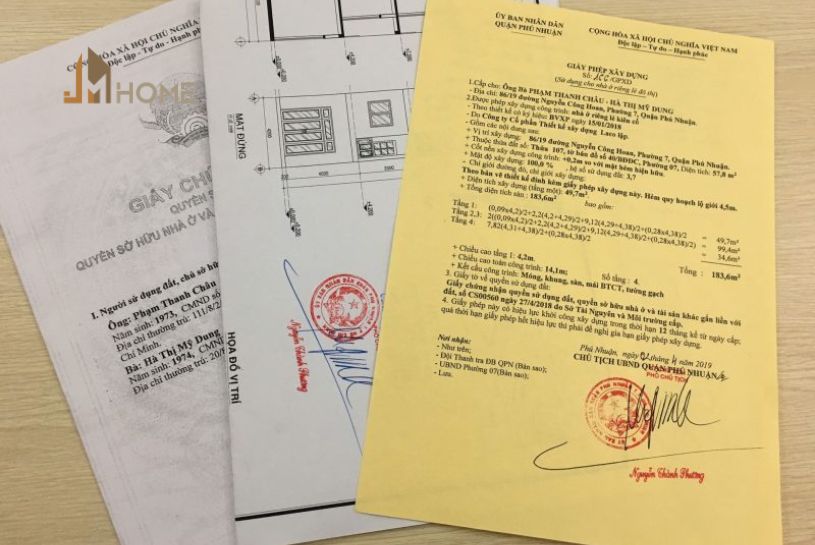 JM HOME
CỘNG HÒA XÃ HỘI CHỦ NGHĨA
Độc lập - Tự do - Hạnh phúc
QUYỀN SỞ HỮU NHÀ Ở VÀ
I. Người sử dụng đất, chủ sở hữ
Ông: Phạm Thanh Châu
Năm sinh: 1973, CMND số
Địa chỉ thường trú: 111/8/2
Chí Minh.
Bà: Hà Thị Mỹ Dung
Năm sinh: 1974, CMN
Địa chỉ thường trú: 20/
MẶT ĐỨNG
HỌA ĐỒ VỊ TRÍ
Nguyễn Thành Phương
ỦY BAN NHÂN DÂN
QUẬN PHÚ NHUẬN
CỘNG HÒA XÃ HỘI CHỦ NGHĨA VIỆT NAM
Độc lập - Tự do - Hạnh phúc
GIẤY PHÉP XÂY DỰNG
Số: /GPXD
(Sử dụng cho nhà ở riêng lẻ đô thị)
1.Cấp cho: Ông Bà PHẠM THANH CHÂU - HÀ THỊ MỸ DUNG
- Địa chỉ: 86/19 đường Nguyễn Công Hoan, Phường 7, Quận Phú Nhuận.
2.Được phép xây dựng công trình: nhà ở riêng lẻ kiên cố
- Theo thiết kế có ký hiệu: BVXP ngày 15/01/2018
- Do Công ty Cổ phần Thiết kế xây dựng Laro lập.
- Gồm các nội dung sau:
+ Vị trí xây dựng: 86/19 đường Nguyễn Công Hoan, Phường 7, Quận Phú Nhuận.
+ Thuộc thửa đất số: Thửa 107, tờ bản đồ số 40/BĐĐC, Phường 07, Diện tích: 57,8 m²
+ Cốt nền xây dựng công trình: +0,2m so với mặt hẻm hiện hữu.
+ Mật độ xây dựng: 100,0 % , hệ số sử dụng đất: 3,7
- Chỉ giới đường đỏ, chỉ giới xây dựng:
Theo bản vẽ thiết kế đính kèm giấy phép xây dựng này. Hẻm quy hoạch lộ giới 4,5m.
+ Diện tích xây dựng (tầng một): 49,7m²
+ Tổng diện tích sàn : 183,6m² bao gồm:
Tầng 1: (0,09x4,2)/2+2,2(4,2+4,29)/2+9,12(4,29+4,38)/2+(0,28x4,38)/2 = 49,7m²
Tầng 2,3: 2((0,09x4,2)/2+2,2(4,2+4,29)/2+9,12(4,29+4,38)/2+(0,28x4,38)/2) = 99,4m²
Tầng 4: 7,82(4,31+4,38)/2+(0,28x4,38)/2 = 34,6m²
Tổng : 183,6m²
+ Chiều cao tầng 1: 4,2m
+ Chiều cao toàn công trình: 14,1m; Số tầng : 4.
+ Kết cấu công trình: Móng, khung, sàn, mái BTCT, tường gạch
3. Giấy tờ về quyền sử dụng đất:
Giấy chứng nhận quyền sử dụng đất, quyền sở hữu nhà ở và tài sản khác gắn liền với
đất, số CS00560 ngày 27/4/2018 do Sở Tài Nguyên và Môi trường cấp.
4. Giấy phép này có hiệu lực khởi công xây dựng trong thời hạn 12 tháng kể từ ngày cấp;
quá thời hạn giấy phép hết hiệu lực thì phải đề nghị gia hạn giấy phép xây dựng.
Nơi nhận:
- Như trên;
- Đội Thanh tra ĐB QPN (Bản sao);
- UBND Phường 07(Bản sao);
- Lưu.
Phú Nhuận, ngày tháng 2019
CHỦ TỊCH UBND QUẬN PHÚ NHUẬN
PHÓ CHỦ TỊCH
Nguyễn Thành Phương